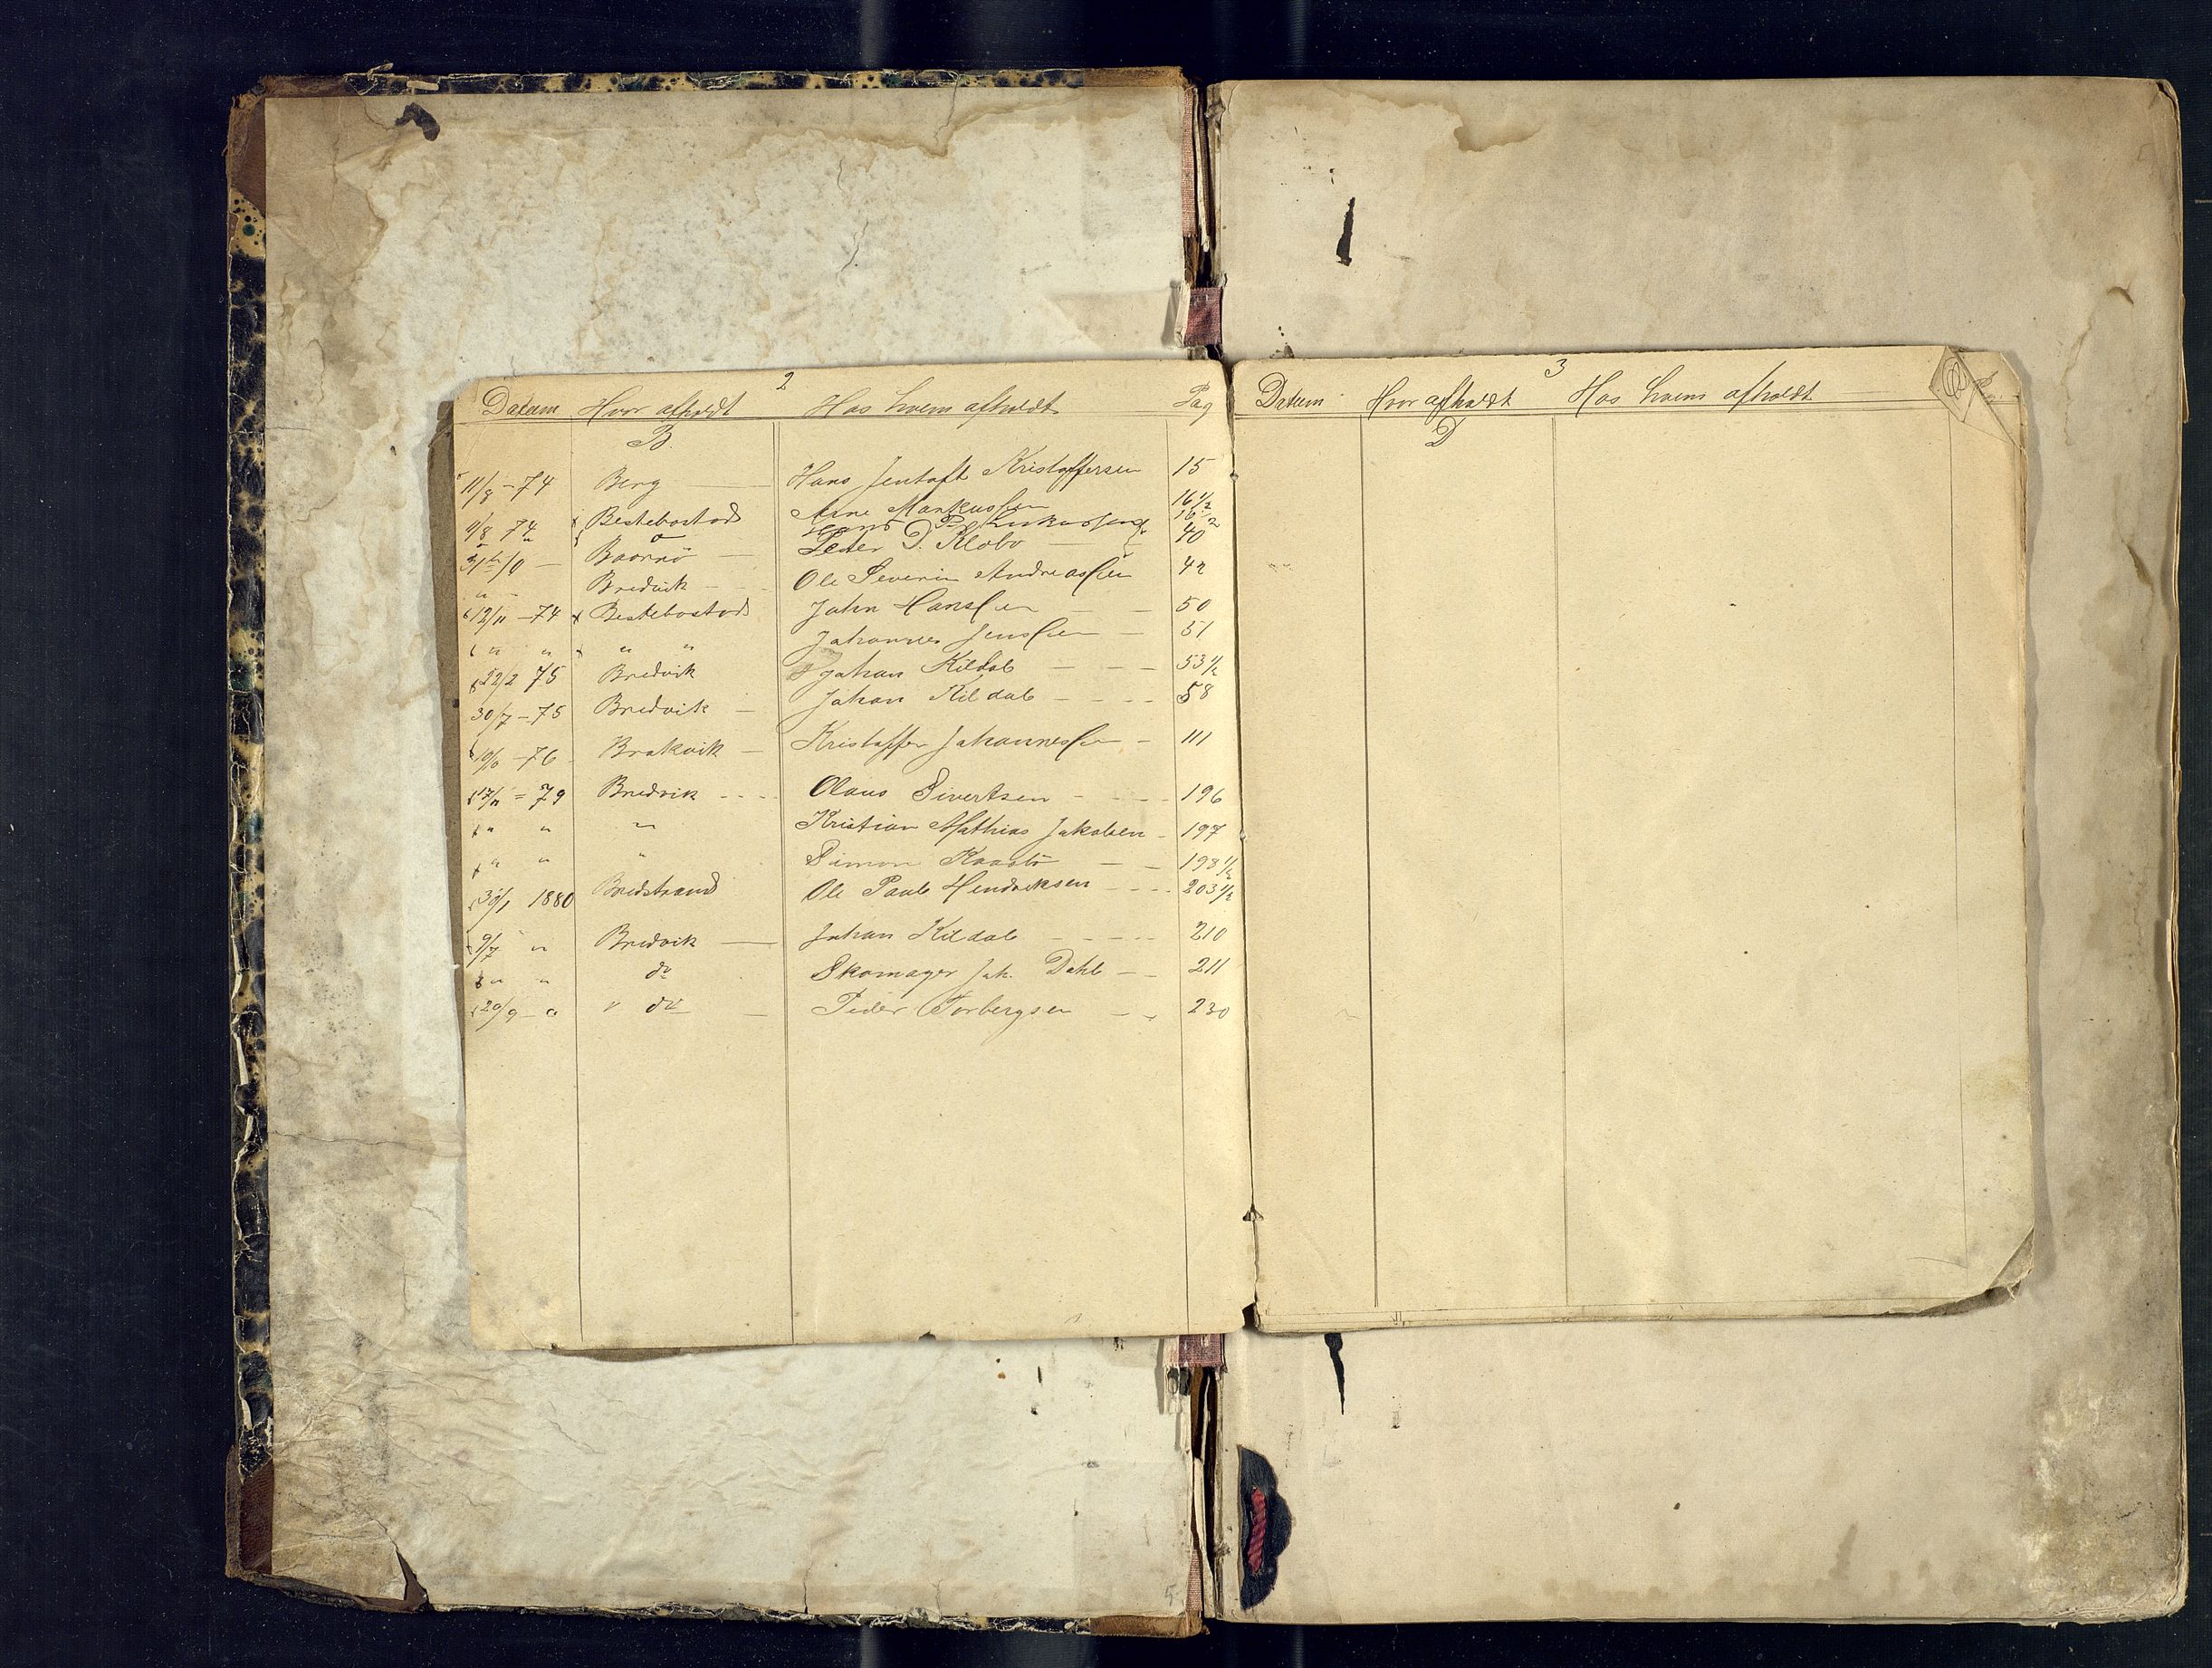 2
Datum Hvor afholdt Hos hvem afholdt Pag
B.
11/8 - 74 Berg Hans Jentoft Kristoffersen 15
9/8 74 Bestebostad Arne Markussen 16 1/2
" " Hans P. Lukassen 16 1/2
31te/10 - Baarnö - Peder D. Klobo 40
" - Bredvik - Ole Severin Andreassen 42
12/11 - 74 x Bestebostad John Hanssen - - 50
" " x " " Johannes Jenssen - 51
22/2 75 Bredvik Johan Kildal - - - 53 1/2
30/7 - 75 Bredvik - Johan Kildal - - - - 58
10/10 - 76 Brakvik - Kristoffer Johannessen - 111
17/11 = 79 Bredvik - - - Olaus Sivertsen - - - - 196
" " " Kristian Mathias Jakobsen - 197
" " " Simon Kaasbö - - 198 1/2
30/1 1880 Bredstrand Ole Paul Hendriksen - - - - 203 1/2
9/7 " Bredvik - Johan Kildal - - - - - 210
" " do Skomager Joh. Dahl - - 211
20/9 - " " do - Peder Torbergsen - - 230
3
Datum Hvor afholdt Hos hvem afholdt
D
5